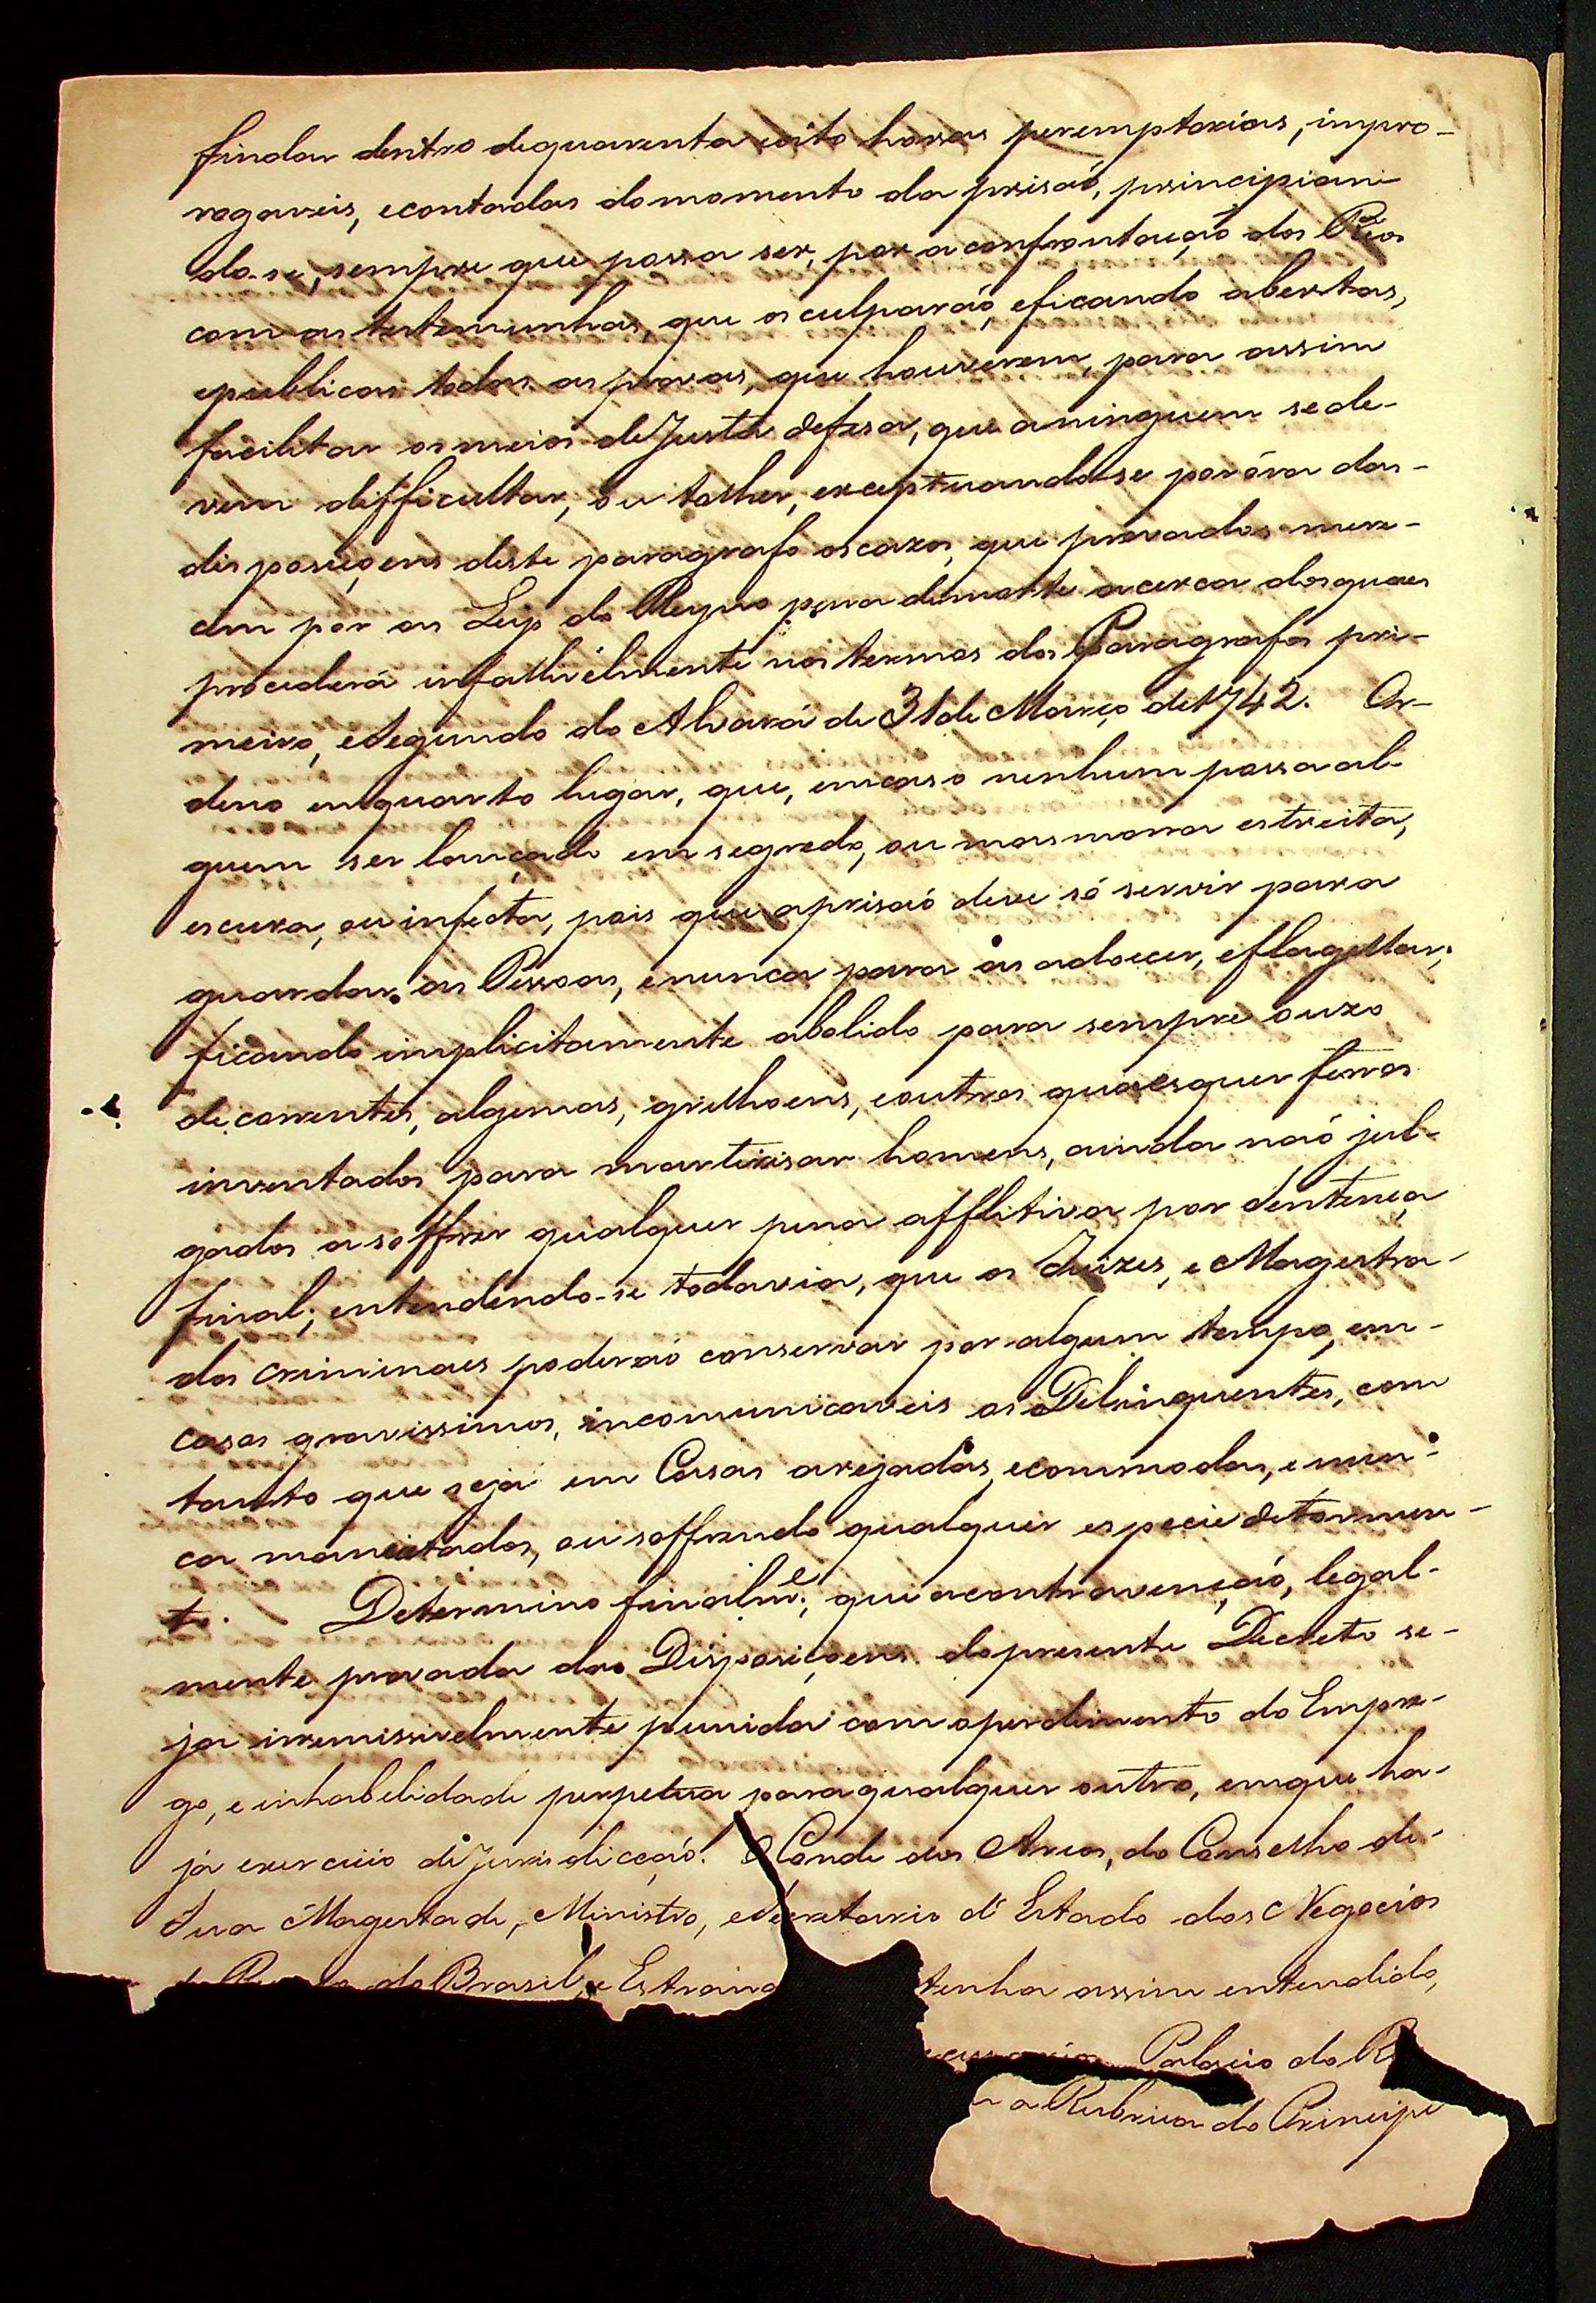 findar dentro dequarenta eoito horas peremptorias, impro-
rogaveis, econtadas domomento da prisaõ, principian-
do-se, sempre que possa ser, por a confrontaçaõ dos Réos
com as testemunhas, que os culparaõ, eficando abertas,
epublicas todas as provas, que houverem, para assim
facilitar os meios deJusta defesa, que aninguem sede-
vem difficultar, ou tolher, exceptuando-se poróra das-
disposiçoens deste paragrafo os cazos, que provados mere-
cem por as Leys do Reyno pena demorte acerca dosquaes
procederá infallivelmente nos termos dos Paragrafos pri-
meiro, eSegundo do Alvará de 31 de Março de1742. Or-
deno emquarto lugar, que, emcaso nenhum possa al-
guem ser lançado em segredo, ou masmorra estreita,
escura, ou infecta, pois que aprisaõ deve só servir para
guardar as Pessoas, enunca para as adoecer, eflagellar;
ficando implicitamente abolido para sempre ouzo
de correntes, algemas, grilhoens, eoutros quaesquer ferros
inventados para martirisar homens, ainda naõ jul-
gados a soffrer qualquer pena afflitiva por Sentença
final; entendendo-se todavia, que os Juizes, e Magestra-
dos criminaes poderaõ conservar por algum tempo, em-
casos gravissimos, incomunicaveis os Delinquentes, com
tanto que seja em Casas arejadas, ecommodas, e nun-
ca manietados, ou soffrendo qualquer especie detormen-
to. Determino finalm.e, que acontravençaõ, legal-
mente provada das Disposiçoens dopresente Decreto se-
ja irremissivelmente punida com operdimento do Empre-
go, e inhabelidade perpetua paraqualquer outro, emque ha-
ja exercicio deJurisdicçaõ. O Conde dos Arcos, do Conselho de-
Sua Magestade, Ministro, eSecretario d'Estado dos Negocios
do Brasil, e Estrang tenha assim entendido,
Palacio do R
a Rubrica do Principe